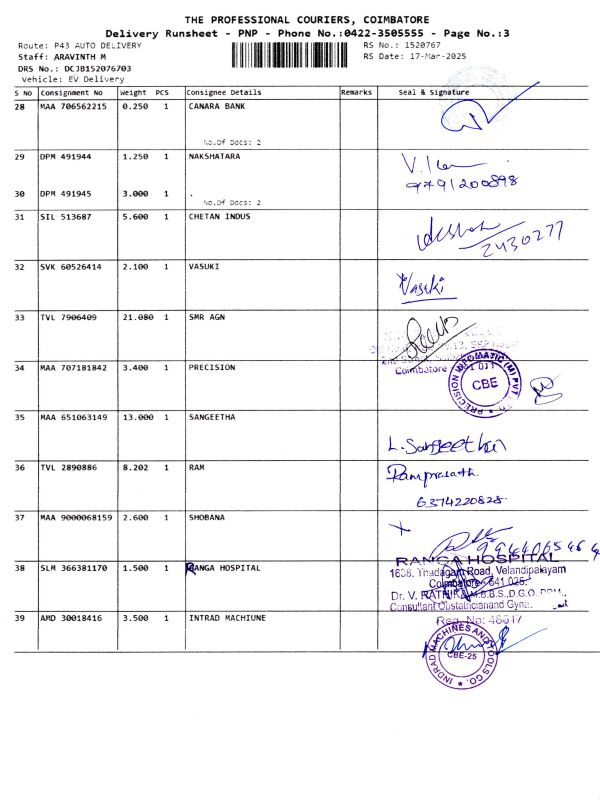 THE PROFESSIONAL COURIERS, COIMBATORE
Delivery Runsheet - PNP - Phone No.:0422-3505555 - Page No.:3
Route: P43 AUTO DELIVERY
RS No.: 1520767
Staff: ARAVINTH M
RS Date: 17-Mar-2025
DRS No.: DCJB152076703
Vehicle: EV Delivery
S No Consignment No Weight PCS Consignee Details Remarks Seal & Signature
28 MAA 706562215 0.250 1 CANARA BANK
No.Of Docs: 2
29 DPM 491944 1.250 1 NAKSHATARA
9791200898
30 DPM 491945 3.000 1 .
No.Of Docs: 2
31 SIL 513687 5.600 1 CHETAN INDUS
2430277
32 SVK 60526414 2.100 1 VASUKI
Vasuki
33 TVL 7906409 21.080 1 SMR AGN
Coimbatore
34 MAA 707181842 3.400 1 PRECISION
PRECISION INFOMATIC (M) PVT
CBE
35 MAA 651063149 13.000 1 SANGEETHA
L. Sangeetha
36 TVL 2890886 8.202 1 RAM
Ramprasath.
6374220828
37 MAA 9000068159 2.600 1 SHOBANA
38 SLM 366381170 1.500 1 RANGA HOSPITAL
RANGA HOSPITAL
1636, Thadagam Road, Velandipalayam
Coimbatore - 641 025.
Dr. V. RATHIKA M.B.B.S., D.G.O.
Consultant Obstatricianand Gyna.
Reg. No: 46617
39 AMD 30018416 3.500 1 INTRAD MACHIUNE
INDRAD MACHINES AND TOOLS CO.
CBE-25